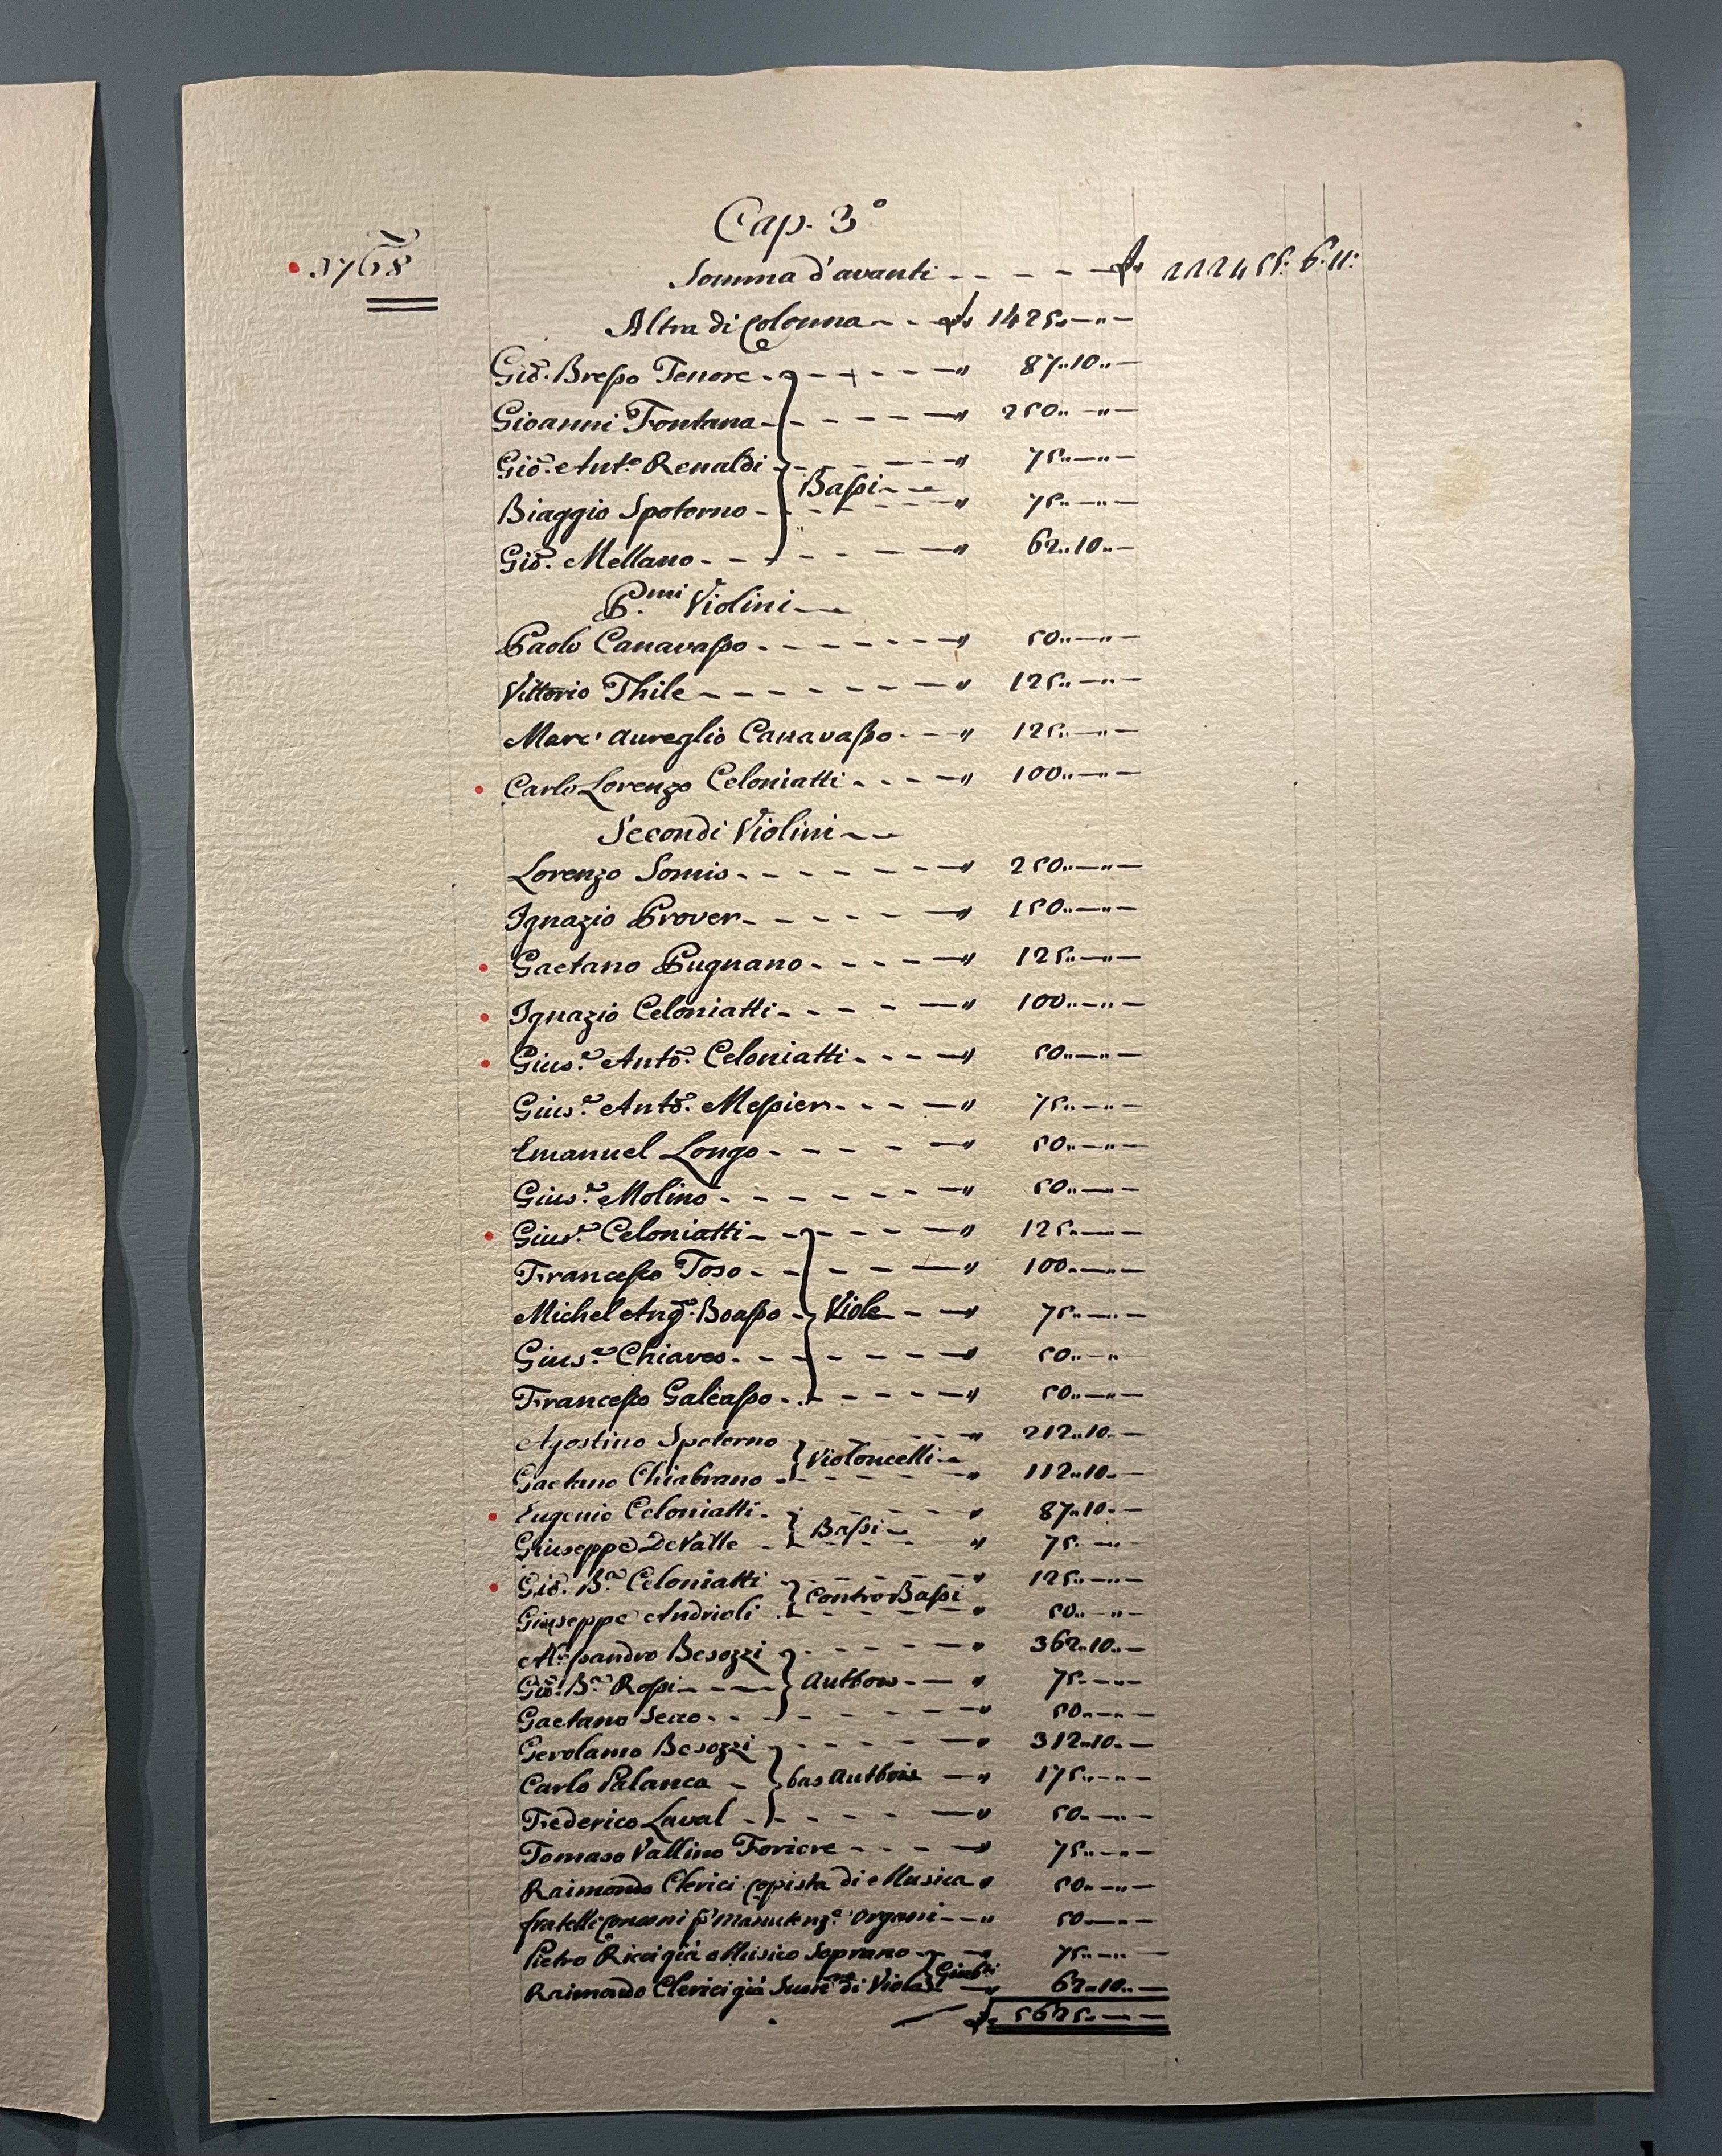 Cap. 3°
1768
Somma d'avanti - - - - £ 222455: 6: 11:
Altra di Colonna - - £ 1425..—..—
Gio. Bresso Tenore - - - - - - " 87..10..—
Gioanni Fontana - - - - - " 250..—..—
Gio. Ant.° Renaldi - - - - - " 75..—..—
Bassi - -
Biaggio Spotorno - - - - - " 75..—..—
Gio. Mellano - - - - - - " 62..10..—
P.mi Violini —
Paolo Canavasso - - - - - - " 50..—..—
Vittorio Thile - - - - - - - " 125..—..—
Marc' Aureglio Canavasso - - - " 125..—..—
Carlo Lorenzo Celoniatti - - - - " 100..—..—
Secondi Violini - -
Lorenzo Somis - - - - - - - " 250..—..—
Ignazio Prover - - - - - - " 150..—..—
Gaetano Pugnano - - - - - " 125..—..—
Ignazio Celoniatti - - - - - " 100..—..—
Gius.e Anto. Celoniatti - - - - " 50..—..—
Gius.e Anto. Messier - - - - " 75..—..—
Emanuel Longo - - - - - " 50..—..—
Gius.e Molino - - - - - - - " 50..—..—
Gius.e Celoniatti - - - - - - " 125..—..—
Francesco Toso - - - - - " 100..—..—
Michel Ang.° Boasso - Viole - - " 75..—..—
Gius.e Chiaves - - - - - - " 50..—..
Francesco Galeasso - - - - - - " 50..—..—
Agostino Spotorno - - - - " 212..10..—
Violoncelli - -
Gaetano Chiabrano - - - - - " 112..10..—
Eugenio Celoniatti - - - - - " 87..10..—
Bassi - -
Giuseppe De Valle - - - - - " 75..—..—
Gio. B.a Celoniatti - - - - " 125..—..—
Contro Bassi
Giuseppe Andrioli - - - - - " 50..—..—
Alessandro Besozzi - - - - - " 362..10..—
Gio. B.a Rossi - - - Autbois - - " 75..—..—
Gaetano Secco - - - - - - " 50..—..—
Gerolamo Besozzi - - - - - " 312..10..—
Carlo Palanca - bas Autbois - " 175..—..—
Frederico Laval - - - - - - " 50..—..—
Tomaso Vallino Foriere - - - - " 75..—..—
Raimondo Clerici Copista di Musica " 50..—..—
fratelli Concone p. manutenz.e Organi - - " 50..—..—
Pietro Ricci già Musico Soprano - - " 75..—..—
Raimondo Clerici già di Viola - " 62..10..—
£ 5625..—..—